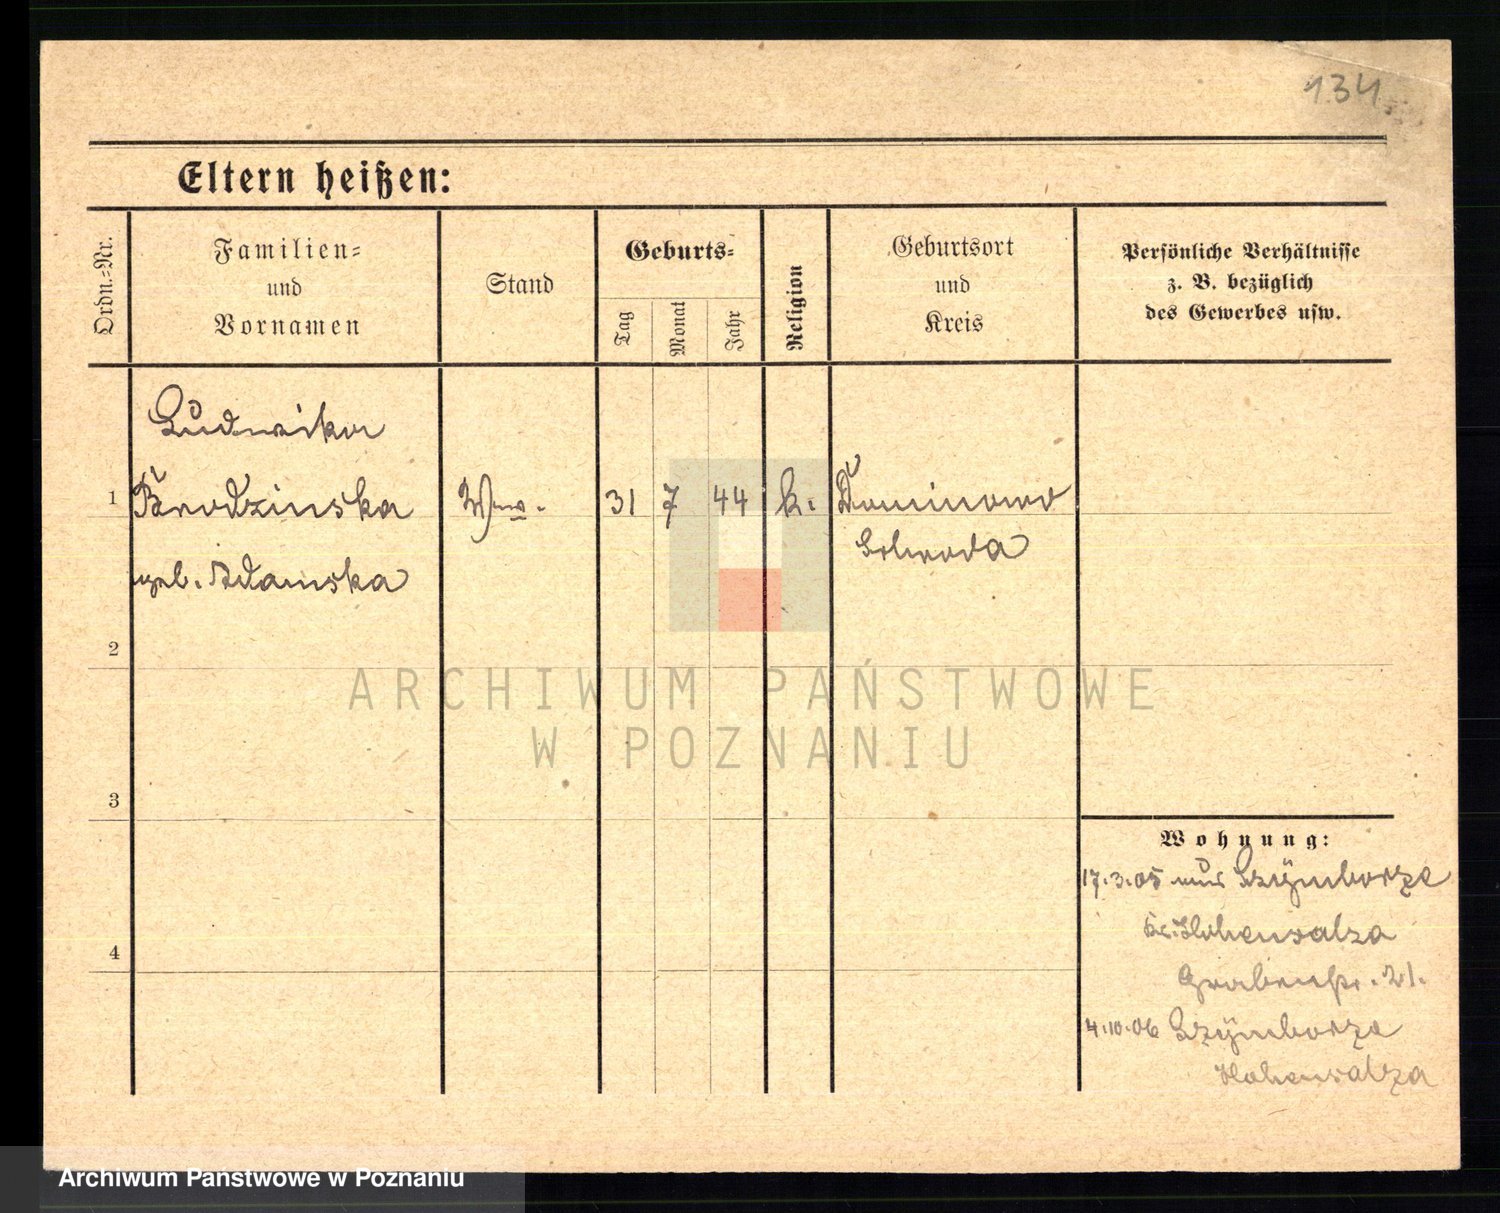 134
Eltern heißen:
Ordn.=Nr.
Familien=
und
Vornamen
Stand
Geburts=
Tag
Monat
Jahr
Religion
Geburtsort
und
Kreis
Persönliche Verhältnisse
z. B. bezüglich
des Gewerbes usw.
Ludwika
1 Brodzinska Ww. 31 7 44 k. Dominowo
Schroda
geb. Adamska
2
3
4
ARCHIWUM PAŃSTWOWE
W POZNANIU
Wohnung:
17.3.05 aus Szymborze
Kr. Hohensalza
Grabenstr. 21.
4.10.06 Szymborze
Hohensalza
Archiwum Państwowe w Poznaniu